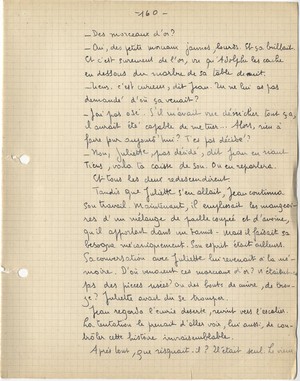 -160-
_ Des morceaux d'or?
_ Oui, des petits morceaux jaunes, lourds. Et ça brillait.
Et c'est sûrement de l'or, vu qu'Adolphe les cache
en dessous du marbre de sa table de nuit.
_ Tiens, c'est curieux, dit Jean. Tu ne lui as pas
demandé d'où ça venait?
_ J'ai pas osé. S'il m'avait vue dénicher tout ça,
il aurait été capable de me tuer... Alors, rien à
faire pour aujourd'hui? T'es pas décidé?
_ Non, Juliette, pas décidé, dit Jean en riant.
Tiens, voilà ta caisse de son. On en reparlera.
Et tous les deux redescendirent.
Tandis que Juliette s'en allait, Jean continua
son travail. Maintenant, il emplissait les mangeoi-
res d'un mélange de paille coupée et d'avoine,
qu'il apportait dans un tamis. Mais il faisait sa
besogne mécaniquement. Son esprit était ailleurs.
Sa conversation avec Juliette lui revenait à la mé-
moire. D'où venaient ces morceaux d'or? N'était-ce
pas des pièces usées? Ou des bouts de cuivre, de bron-
ze? Juliette avait dû se tromper.
Jean regarda l'écurie déserte, revint vers l'escalier.
La tentation le prenait d'aller voir, lui aussi, de con-
trôler cette histoire invraisemblable.
Après tout, que risquait-il? Il était seul. Le vieux